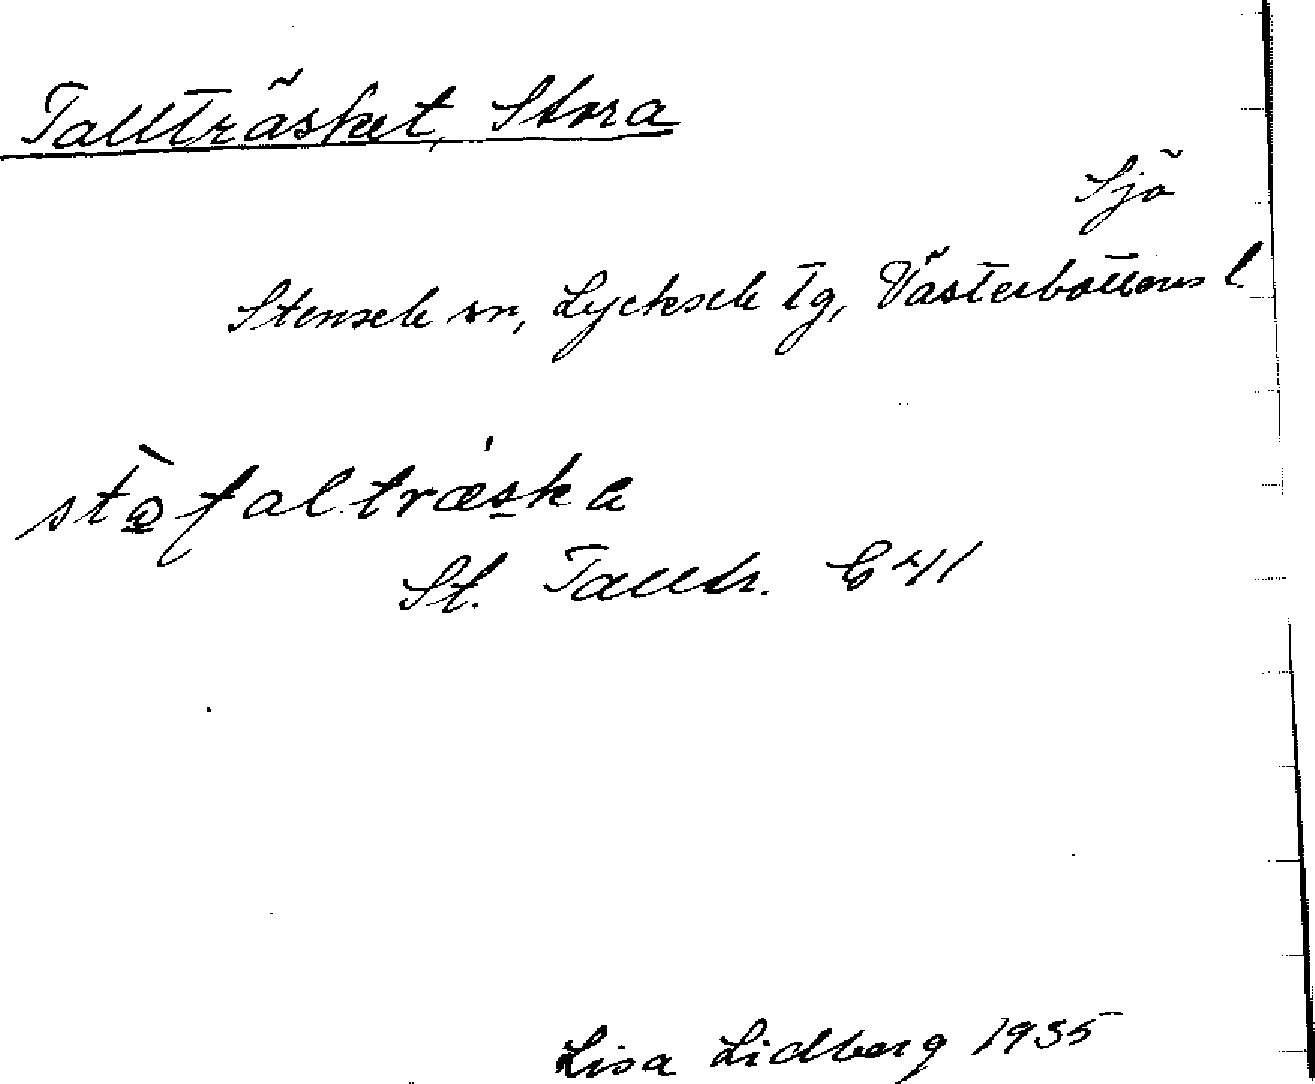 Tallträsket, Stora
Sjö
Stensele sn, Lycksele tg, Västerbottens l.
St. Talltr. C 41
Lisa Lidberg 1935